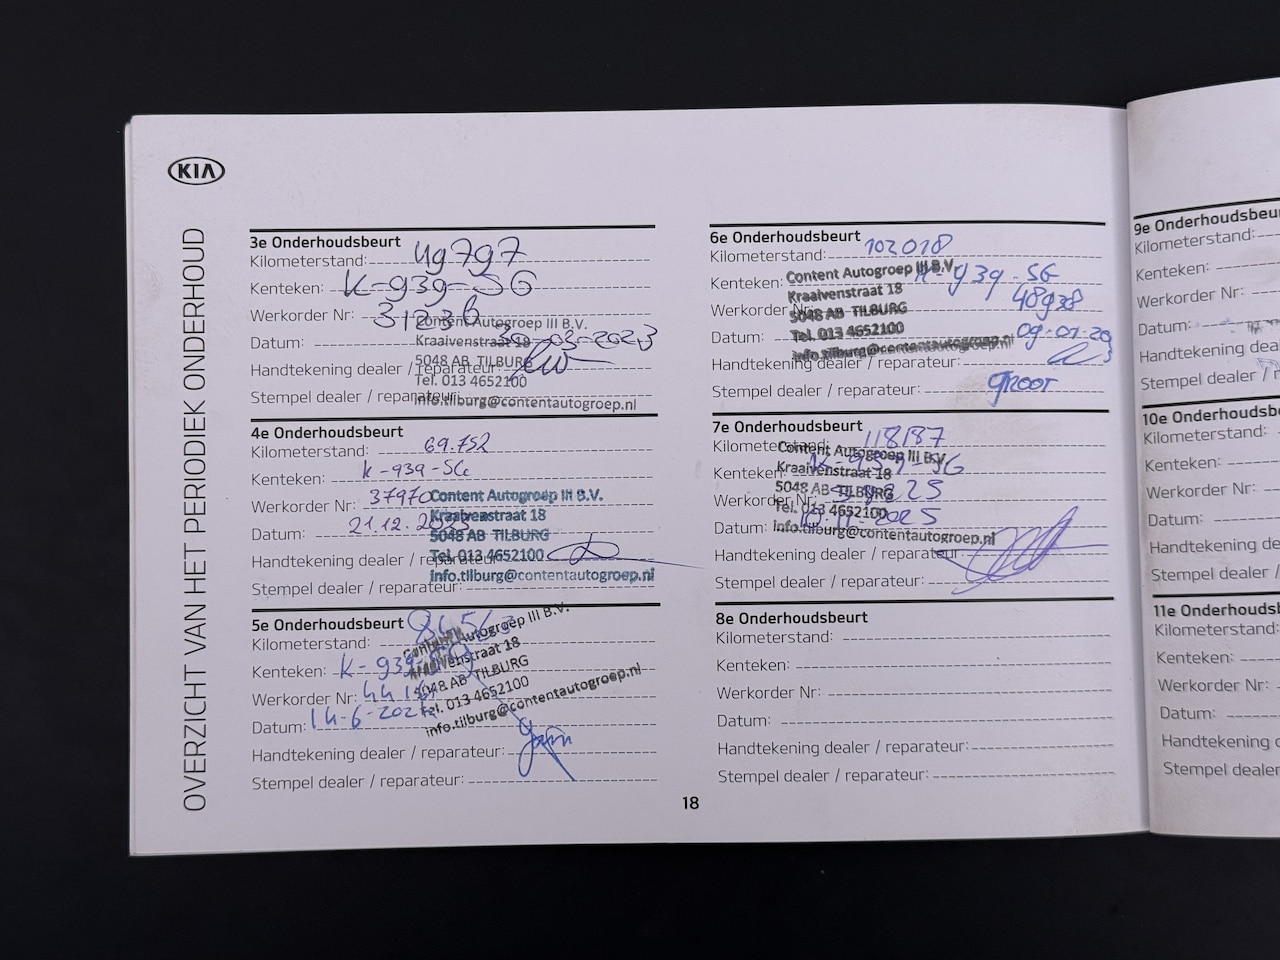 KIA
OVERZICHT VAN HET PERIODIEK ONDERHOUD
3e Onderhoudsbeurt
Kilometerstand: 49797
Kenteken: K-939-SG
Werkorder Nr: 31236
Datum: 30-03-2023
Handtekening dealer / reparateur:
Stempel dealer / reparateur:
Content Autogroep III B.V.
Kraaivenstraat 18
5048 AB TILBURG
Tel. 013 4652100
info.tilburg@contentautogroep.nl
4e Onderhoudsbeurt
Kilometerstand: 69.752
Kenteken: K-939-SG
Werkorder Nr: 37970
Datum: 21.12.2023
Handtekening dealer / reparateur:
Stempel dealer / reparateur:
Content Autogroep III B.V.
Kraaivenstraat 18
5048 AB TILBURG
Tel. 013 4652100
info.tilburg@contentautogroep.nl
5e Onderhoudsbeurt
Kilometerstand:
Kenteken: K-939-
Werkorder Nr:
Datum: 14-6-2024
Handtekening dealer / reparateur:
Stempel dealer / reparateur:
Content Autogroep III B.V.
Kraaivenstraat 18
5048 AB TILBURG
Tel. 013 4652100
info.tilburg@contentautogroep.nl
6e Onderhoudsbeurt
Kilometerstand: 102018
Kenteken: K-939-SG
Werkorder Nr: 48938
Datum: 09-01-20
Handtekening dealer / reparateur:
Stempel dealer / reparateur: groot
Content Autogroep III B.V.
Kraaivenstraat 18
5048 AB TILBURG
Tel. 013 4652100
info.tilburg@contentautogroep.nl
7e Onderhoudsbeurt
Kilometerstand: 118187
Kenteken: K-939-SG
Werkorder Nr:
Datum: 11-2025
Handtekening dealer / reparateur:
Stempel dealer / reparateur:
Content Autogroep III B.V.
Kraaivenstraat 18
5048 AB TILBURG
Tel. 013 4652100
info.tilburg@contentautogroep.nl
8e Onderhoudsbeurt
Kilometerstand:
Kenteken:
Werkorder Nr:
Datum:
Handtekening dealer / reparateur:
Stempel dealer / reparateur:
18
9e Onderhoudsbeu
Kilometerstand:
Kenteken:
Werkorder Nr:
Datum:
Handtekening dea
Stempel dealer /
10e Onderhoudsb
Kilometerstand:
Kenteken:
Werkorder Nr:
Datum:
Handtekening de
Stempel dealer
11e Onderhouds
Kilometerstand:
Kenteken:
Werkorder Nr:
Datum:
Handtekening
Stempel dealer